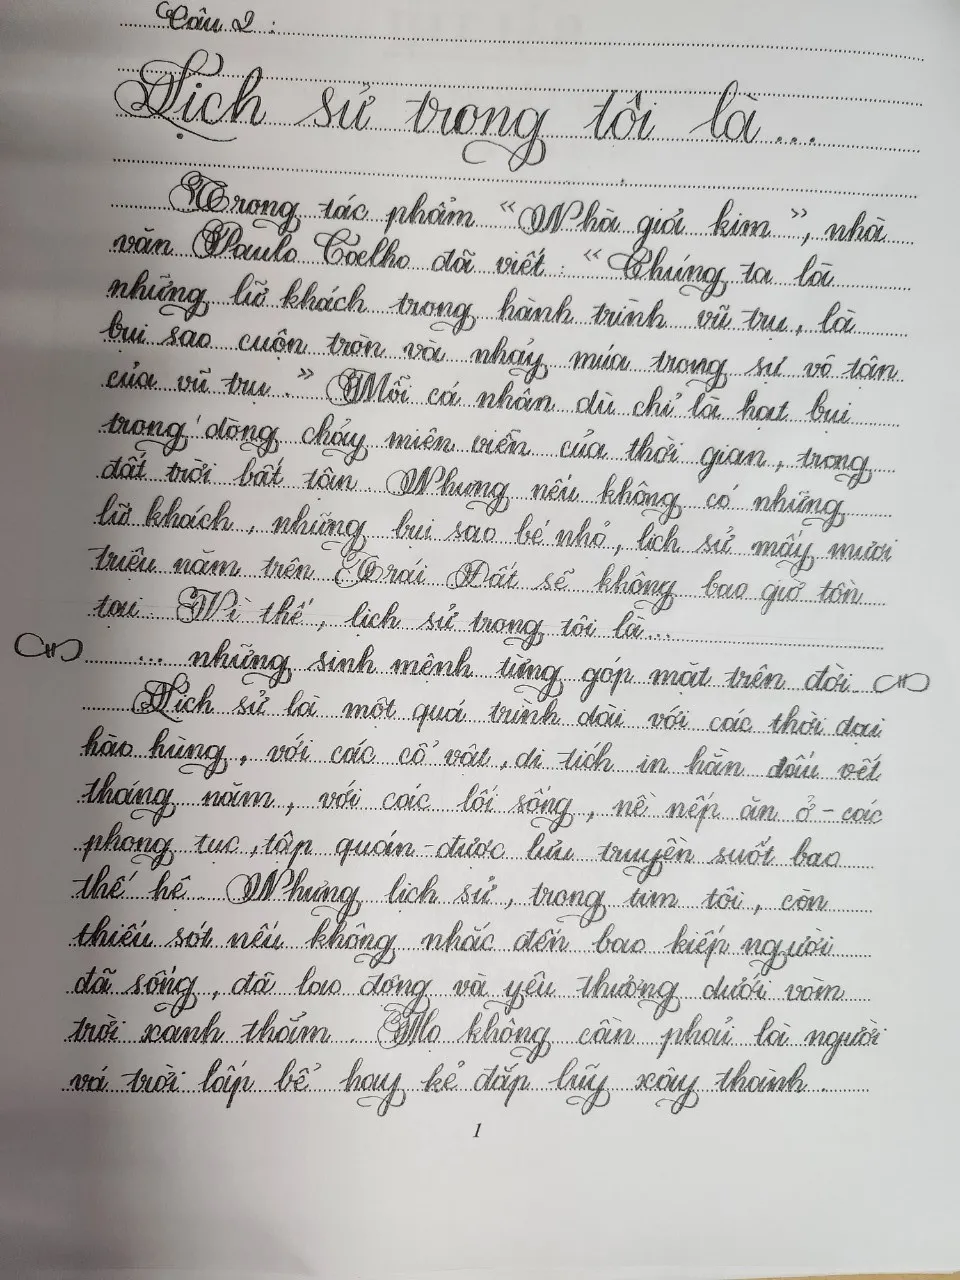 Câu 2 :
Lịch sử trong tôi là...
Trong tác phẩm “Nhà giả kim”, nhà
văn Paulo Coelho đã viết : “Chúng ta là
những lữ khách trong hành trình vũ trụ, là
bụi sao cuộn tròn và nhảy múa trong sự vô tận
của vũ trụ.” Mỗi cá nhân dù chỉ là hạt bụi
trong dòng chảy miên viễn của thời gian, trong
đất trời bất tận. Nhưng nếu không có những
lữ khách, những bụi sao bé nhỏ, lịch sử mấy mươi
triệu năm trên Trái Đất sẽ không bao giờ tồn
tại. Vì thế, lịch sử trong tôi là...
... những sinh mệnh từng góp mặt trên đời
Lịch sử là một quá trình dài với các thời đại
hào hùng, với các cổ vật, di tích in hằn dấu vết
tháng năm, với các lối sống, nề nếp ăn ở - các
phong tục, tập quán - được lưu truyền suốt bao
thế hệ. Nhưng lịch sử, trong tim tôi, còn
thiếu sót nếu không nhắc đến bao kiếp người
đã sống, đã lao động và yêu thương dưới vòm
trời xanh thắm. Họ không cần phải là người
vá trời lấp bể hay kẻ đắp lũy xây thành.
1